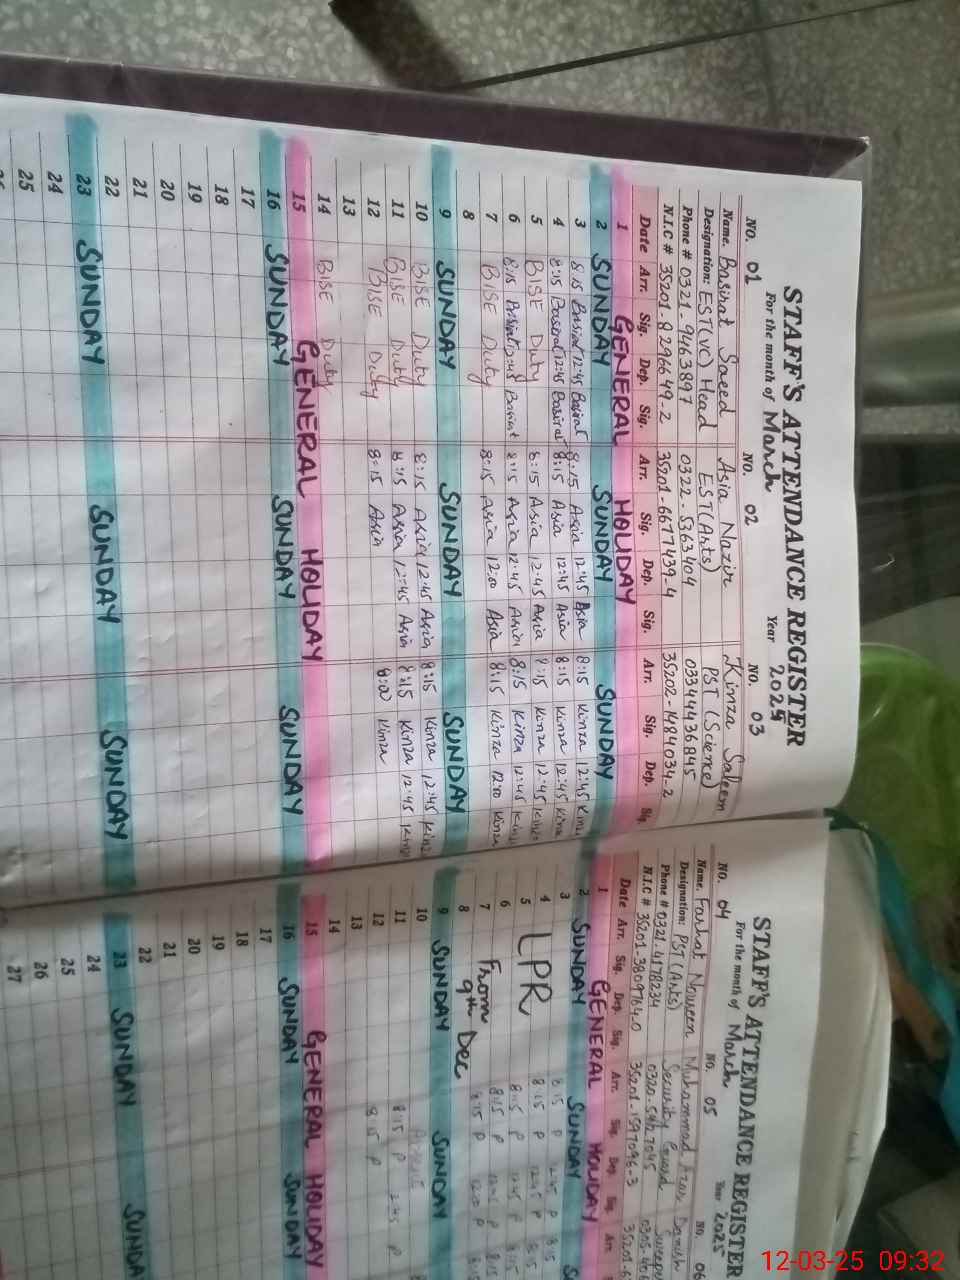 STAFF'S ATTENDANCE REGISTER
For the month of March Year 2025
NO. 01 NO. 02 NO. 03
Name. Basirat Saeed Asia Nazir Kinza Saleem
Designation: EST(vc) Head EST(Arts) PST (Science)
Phone # 0321-9463897 0322-5563404 03444436845
N.I.C # 35201-8296649-2 35201-6677439-4 35202-1484034-2
Date Arr. Sig. Dep. Sig. Arr. Sig. Dep. Sig. Arr. Sig. Dep. Sig.
1 GENERAL HOLIDAY
2 SUNDAY SUNDAY SUNDAY
3 8:15 Basirat 12:45 Basirat 8:15 Asia 12:45 Asia 8:15 Kinza 12:45 Kinza
4 8:15 Basirat 12:45 Basirat 8:15 Asia 12:45 Asia 8:15 Kinza 12:45 Kinza
5 BISE Duty 8:15 Asia 12:45 Asia 8:15 Kinza 12:45 Kinza
6 8:15 Basirat 12:45 Basirat 8:15 Asia 12:45 Asia 8:15 Kinza 12:45 Kinza
7 BISE Duty 8:15 Asia 12:00 Asia 8:15 Kinza 12:00 Kinza
8
9 SUNDAY SUNDAY SUNDAY
10 BISE Duty 8:15 Asia 12:45 Asia 8:15 Kinza 12:45 Kinza
11 BISE Duty 8:15 Asia 12:45 Asia 8:15 Kinza 12:45 Kinza
12 BISE Duty 8:15 Asia 8:00 Kinza
13
14 BISE Duty
15 GENERAL HOLIDAY
16 SUNDAY SUNDAY SUNDAY
17
18
19
20
21
22
23 SUNDAY SUNDAY SUNDAY
24
25
STAFF'S ATTENDANCE REGISTER
For the month of March Year 2025
NO. 04 NO. 05 NO. 06
Name. Farhat Noureen Muhammad
Designation: PST (Arts) Security Guard
Phone # 0321-4178234 0320-5417045
N.I.C # 35201-3809764-0 35201-1597096-3
Date Arr. Sig. Dep. Sig. Arr. Sig. Dep. Sig. Arr.
1 GENERAL HOLIDAY
2 SUNDAY SUNDAY
3 8:15 P 12:45 P 8:15
4 LPR 8:15 P 12:45 P 8:15
5 8:15 P 12:45 P 8:15
6 8:15 P 12:45 P 8:15
7 From 9th Dec 8:15 P 12:00 P 8:15
8
9 SUNDAY SUNDAY
10
11 8:15 P 12:45 P
12 8:15 P
13
14
15 GENERAL HOLIDAY
16 SUNDAY SUNDAY
17
18
19
20
21
22
23 SUNDAY SUNDAY
24
25
26
27
12-03-25 09:32